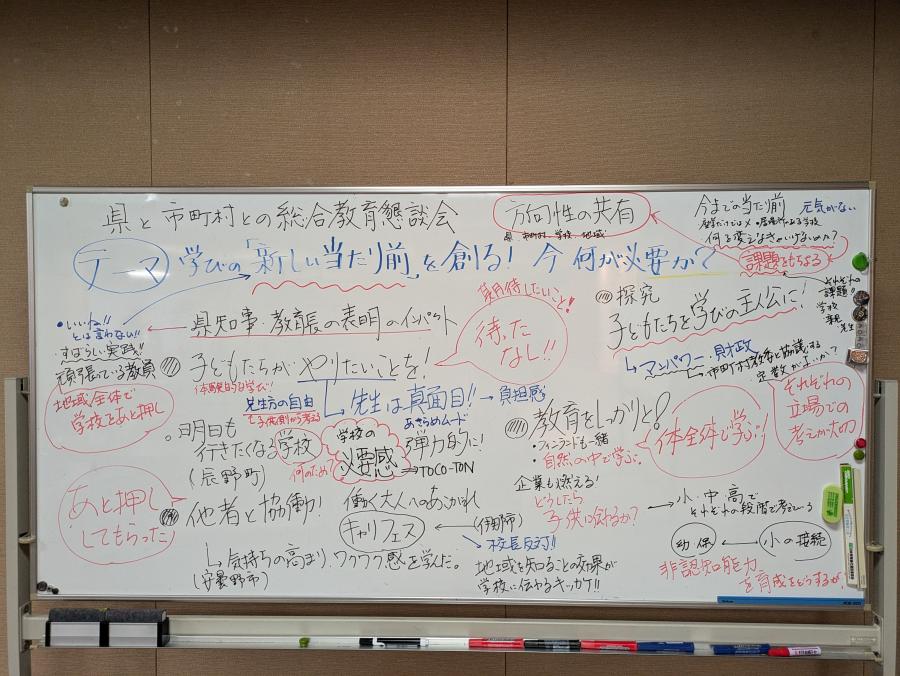 県と市町村との総合教育懇談会
方向性の共有
県 市町村 学校 地域
今までの当たり前
元気がない
何を変えなきゃいけないのか?
課題をもちよる
それぞれの
課題!!
学校
先生
テーマ 学びの「新しい当たり前」を創る! 今 何が必要か?
・いいね!!
とは言わない!!
・すばらしい実践!!
頑張っている教員
地域全体で
学校をあと押し
県知事・教育長の表明のインパクト
期待したいこと!
待った
なし!!
子どもたちがやりたいことを!
体験的な学び!
先生方の自由
先生は真面目!!→負担感
あきらめムード
弾力的に!
明日も
行きたくなる学校
(辰野町)
何のため?
学校の
必要感
⇒TOCO-TON
探究
子どもたちを学びの主人公に!
マンパワー・財政
市町村教委と協議する
定数がよいか?
それぞれの
立場での
考えが大切
教育をしっかりと!
・フィンランドも一緒
・自然の中で学ぶ
体全体で学ぶ!!
企業も燃える!
どうしたら
子供に伝わるか?
→小・中・高で
それぞれの段階で考えている
幼保 ↔ 小の接続
非認知能力
を育成をどうするか
あと押し
してもらった
他者と協働!
働く大人へのあこがれ
キャリフェス
(伊那市)
校長反対!!
気持ちの高まり、ワクワク感を学んだ。
(安曇野市)
地域を知ることの効果が
学校に伝わるキッカケ!!